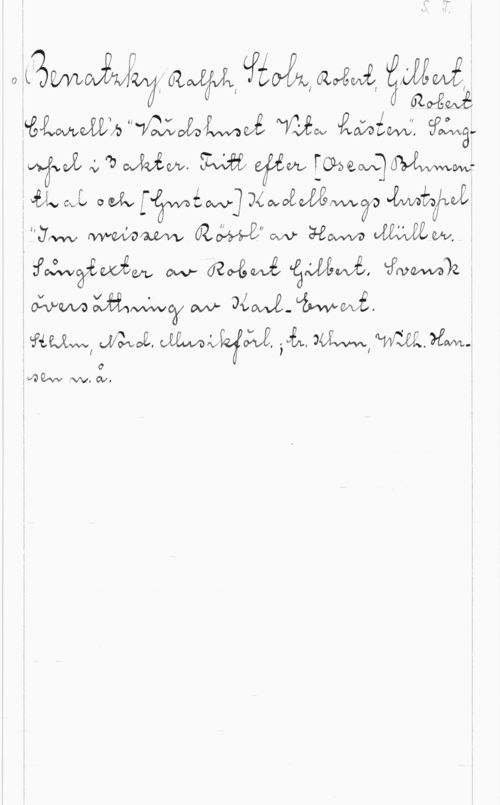 S. T.
Benatzky, Ralph, Stolz, Robert, Gilbert,
Robert
Charell's "Värdshuset Vita hästen". Sång-
spel i 3 akter. Fritt efter [Oscar] Blumen-
thal och [Gustav] Kadelburgs lustspel
"Im weissen Rössl" av Hans Müller.
Sångtexter av Robert Gilbert. Svensk
översättning av Karl-Ewert.
Sthlm, Nord. Musikförl.; tr. Khvn, Wilh. Han-
sen u. å.